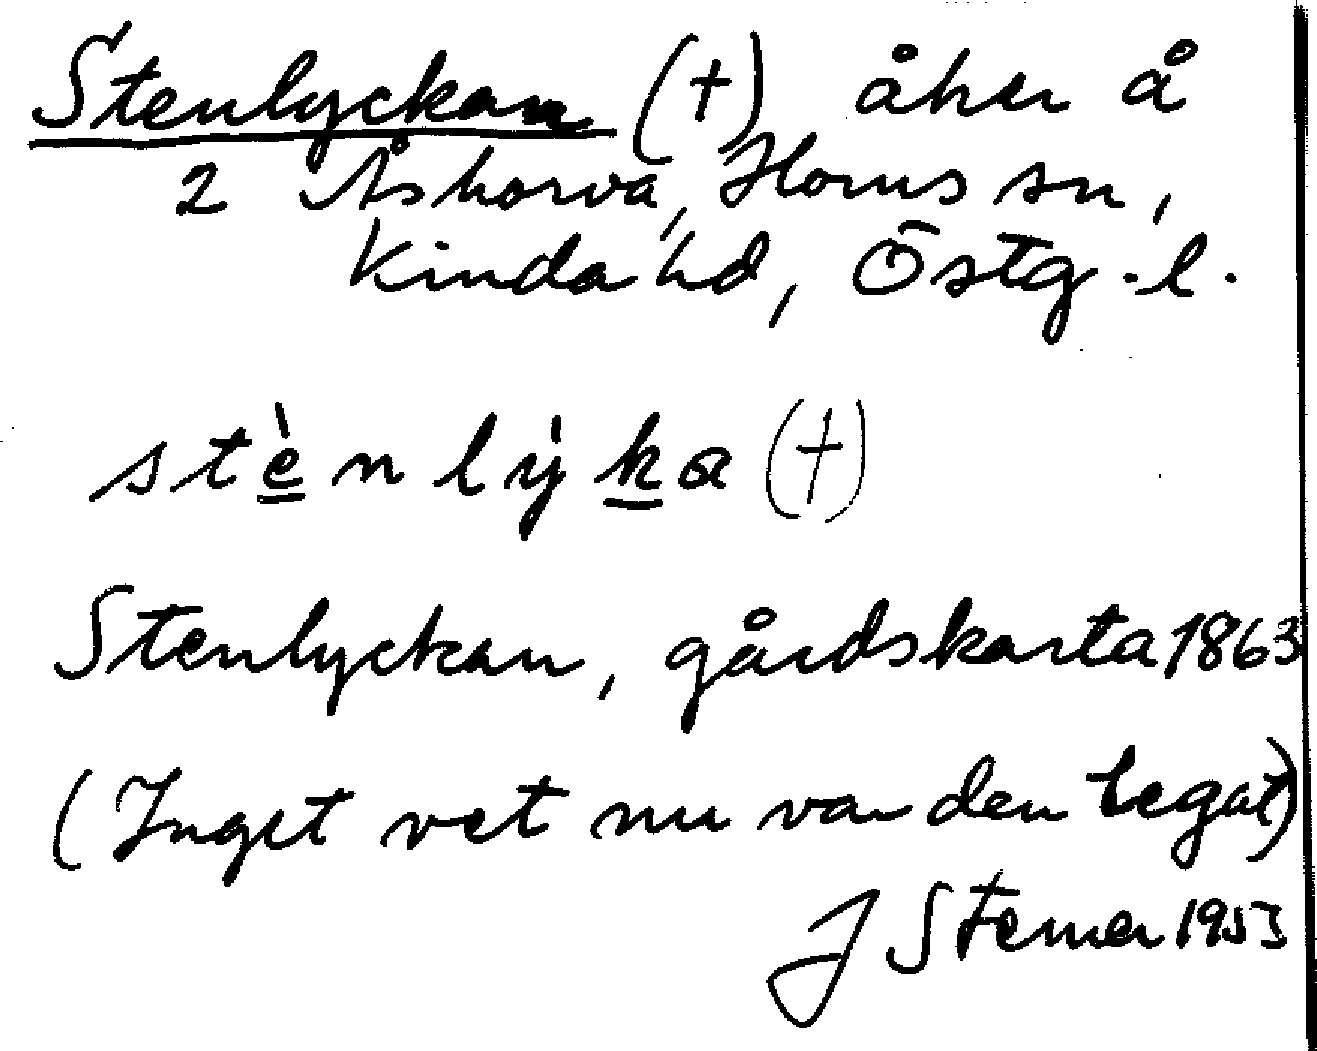 Stenlyckan (†) åker å
2 Åskorva, Horns sn,
Kinda hd, Östg.l.
stènlẏka (†)
Stenlyckan, gårdskarta 1863
(Inget vet nu var den legat)
J Sterner 1953